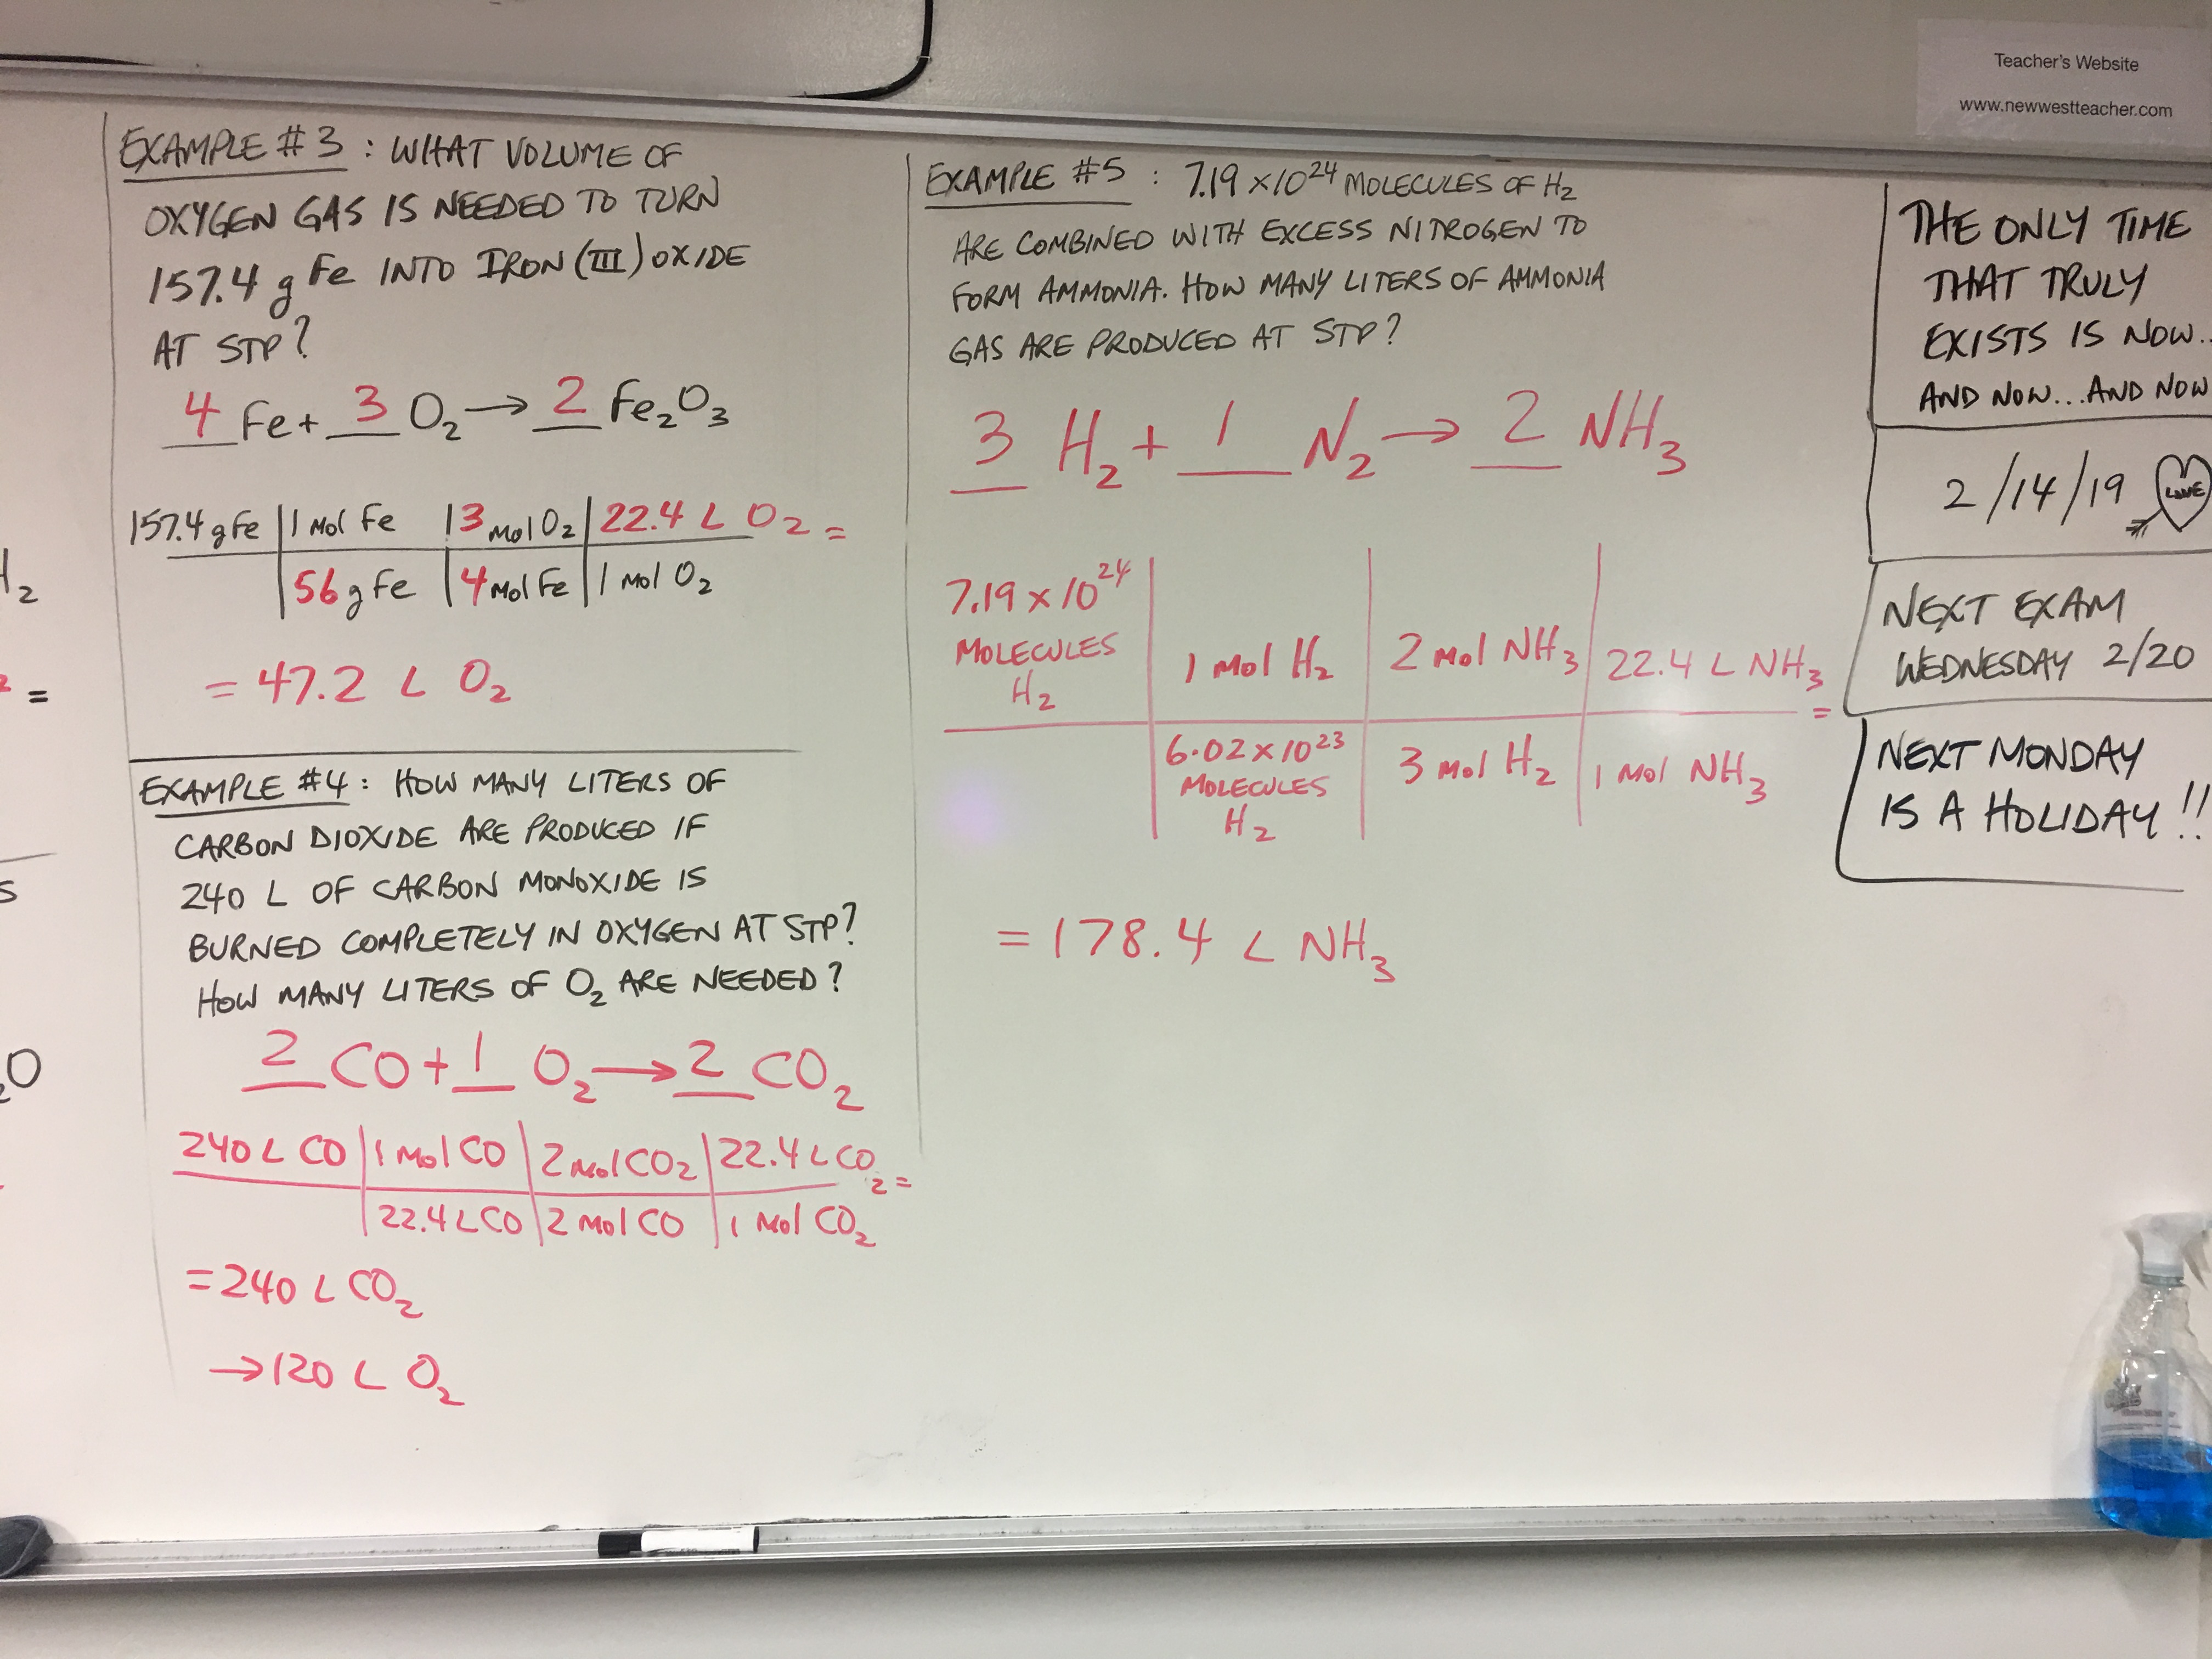 Teacher's Website
www.newwestteacher.com
H₂
=
S
₂O
EXAMPLE #3 : WHAT VOLUME OF
OXYGEN GAS IS NEEDED TO TURN
157.4 g Fe INTO IRON (III) OXIDE
AT STP?
4 Fe + 3 O₂ → 2 Fe₂O₃
157.4 g Fe | 1 Mol Fe | 3 Mol O₂ | 22.4 L O₂ =
56 g Fe | 4 Mol Fe | 1 Mol O₂
= 47.2 L O₂
EXAMPLE #4 : HOW MANY LITERS OF
CARBON DIOXIDE ARE PRODUCED IF
240 L OF CARBON MONOXIDE IS
BURNED COMPLETELY IN OXYGEN AT STP?
HOW MANY LITERS OF O₂ ARE NEEDED?
2 CO + 1 O₂ → 2 CO₂
240 L CO | 1 Mol CO | 2 Mol CO₂ | 22.4 L CO₂ =
22.4 L CO | 2 Mol CO | 1 Mol CO₂
= 240 L CO₂
→ 120 L O₂
EXAMPLE #5 : 7.19 × 10²⁴ MOLECULES OF H₂
ARE COMBINED WITH EXCESS NITROGEN TO
FORM AMMONIA. HOW MANY LITERS OF AMMONIA
GAS ARE PRODUCED AT STP?
3 H₂ + 1 N₂ → 2 NH₃
7.19 × 10²⁴
MOLECULES
H₂ | 1 Mol H₂ | 2 Mol NH₃ | 22.4 L NH₃ =
6.02 × 10²³
MOLECULES
H₂ | 3 Mol H₂ | 1 Mol NH₃
= 178.4 L NH₃
THE ONLY TIME
THAT TRULY
EXISTS IS NOW..
AND NOW...AND NOW
2/14/19 LOVE
NEXT EXAM
WEDNESDAY 2/20
NEXT MONDAY
IS A HOLIDAY!!